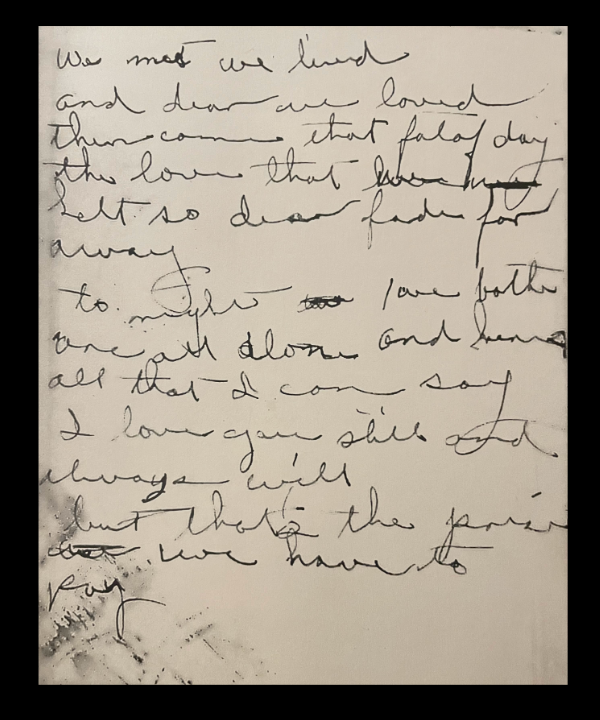 We met we lived
and dear we loved
then come that fatal day
the love that
felt so dear fade far
away
to night love both
are all alone and here
all that I can say
I love you still and
always will
but that's the price
we have to
pay